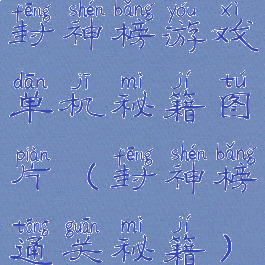 fēng shén bǎng yóu xì
封神榜游戏
dān jī mì jí tú
单机秘籍图
piàn fēng shén bǎng
片（封神榜
tōng guān mì jí
通关秘籍）